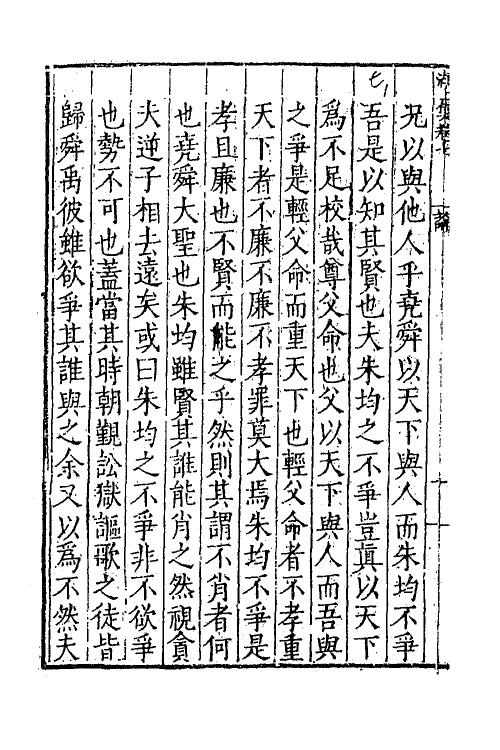 兄以與他人乎堯舜以天下與人而朱均不爭
吾是以知其賢也夫朱均之不爭豈真以天下
爲不足校哉尊父命也父以天下與人而吾與
之爭是輕父命而重天下也輕父命者不孝重
天下者不廉不廉不孝罪莫大焉朱均不爭是
孝且廉也不賢而能之乎然則其謂不肖者何
也堯舜大聖也朱均雖賢其誰能肖之然視貪
夫逆子相去遠矣或曰朱均之不爭非不欲爭
也勢不可也蓋當其時朝覲訟獄謳歌之徒皆
歸舜禹彼雖欲爭其誰與之余又以爲不然夫